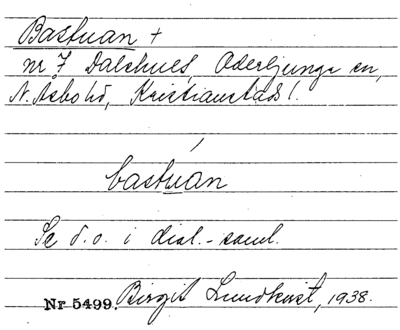 Bastuan +
nr 7 Dalshult, Oderljunga sn,
N. Åsbo hd, Kristianstads l.
bastuan
Se d.o. i dial.-saml.
Nr 5499. Birgit Lundkvist, 1938.